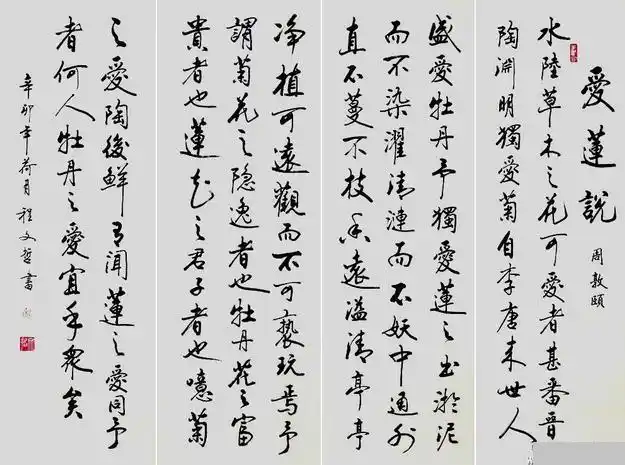 愛蓮說
周敦頤
水陸草木之花可愛者甚番晉
陶淵明獨愛菊自李唐来世人
盛愛牡丹予獨愛蓮之出淤泥
而不染濯清漣而不妖中通外
直不蔓不枝香遠溢清亭亭
净植可遠觀而不可褻玩焉予
謂菊花之隐逸者也牡丹花之富
貴者也蓮花之君子者也噫菊
之愛陶後鮮有聞蓮之愛同予
者何人牡丹之愛宜乎衆矣
辛卯年荷月程文哲書